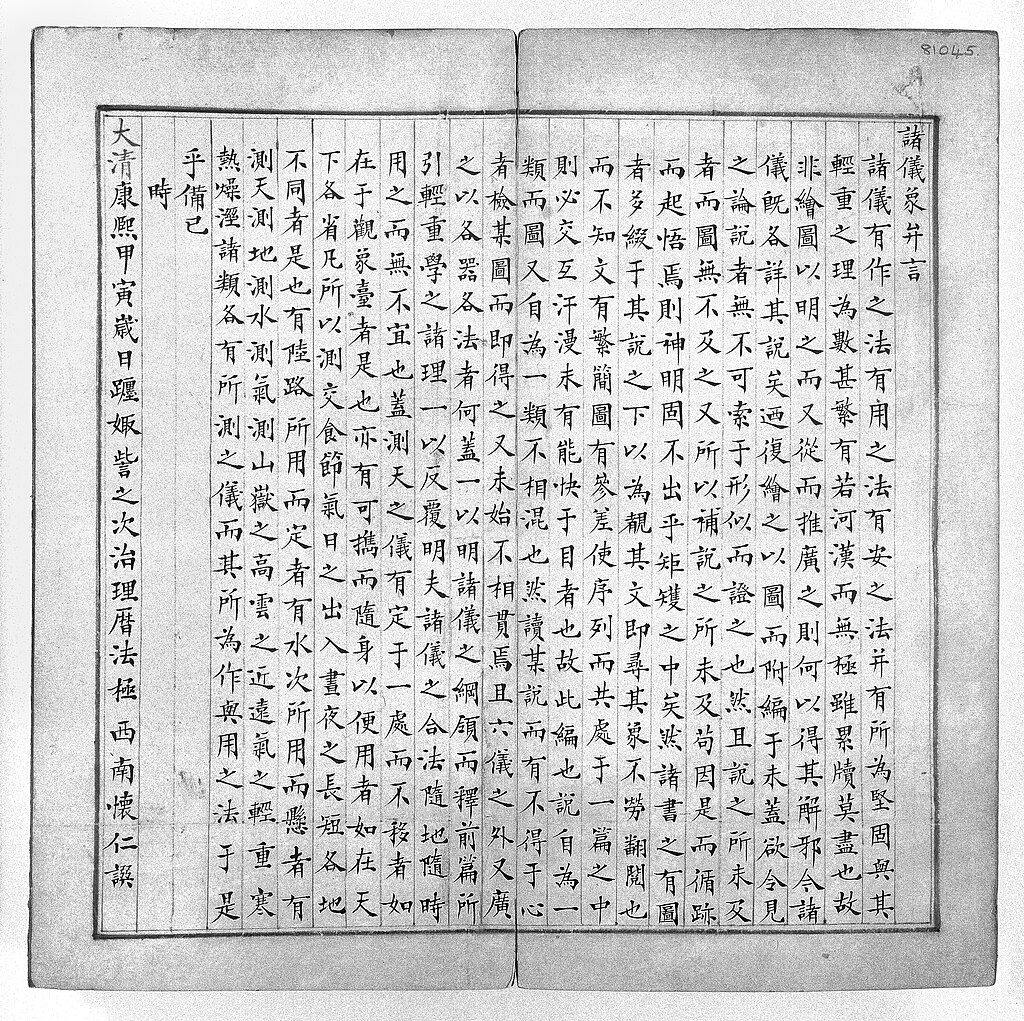 81045.
諸儀象弁言
諸儀有作之法有用之法有安之法并有所為堅固與其
輕重之理為數甚繁有若河漢而無極雖累牘莫盡也故
非繪圖以明之而又從而推廣之則何以得其解邪今諸
儀既各詳其說矣迺復繪之以圖而附編于末蓋欲令見
之論說者無不可索于形似而證之也然且說之所未及
者而圖無不及之又所以補說之所未及苟因是而循跡
而起悟焉則神明固不出乎矩矱之中矣然諸書之有圖
者多綴于其說之下以為覩其文即尋其象不勞翻閱也
而不知文有繁簡圖有參差使序列而共處于一篇之中
則必交互汗漫未有能快于目者也故此編也說自為一
類而圖又自為一類不相混也然讀某說而有不得于心
者檢某圖而即得之又未始不相貫焉且六儀之外又廣
之以各器各法者何蓋一以明諸儀之綱領而釋前篇所
引輕重學之諸理一以反覆明夫諸儀之合法隨地隨時
用之而無不宜也蓋測天之儀有定于一處而不移者如
在于觀象臺者是也亦有可攜而隨身以便用者如在天
下各省凡所以測交食節氣日之出入晝夜之長短各地
不同者是也有陸路所用而定者有水次所用而懸者有
測天測地測水測氣測山嶽之高雲之近遠氣之輕重寒
熱燥溼諸類各有所測之儀而其所為作與用之法于是
乎備已
時
大清康熙甲寅歲日躔娵訾之次治理曆法極西南懷仁譔